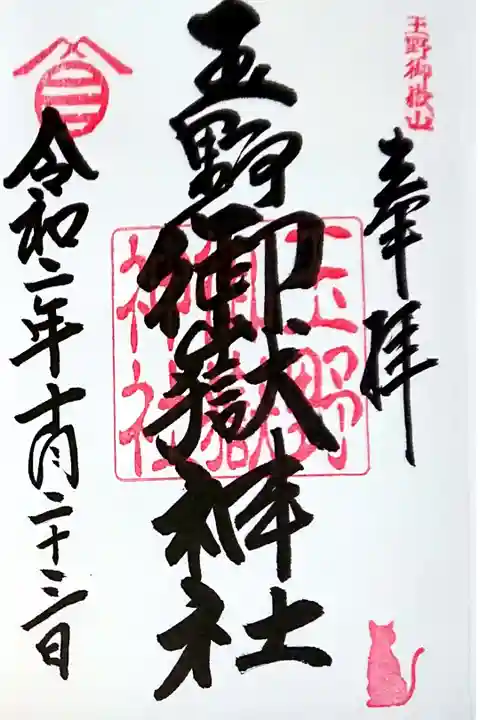 玉野御嶽山
奉拝
玉野御嶽神社
玉野
御嶽
神社
令和二年十月二十三日
三